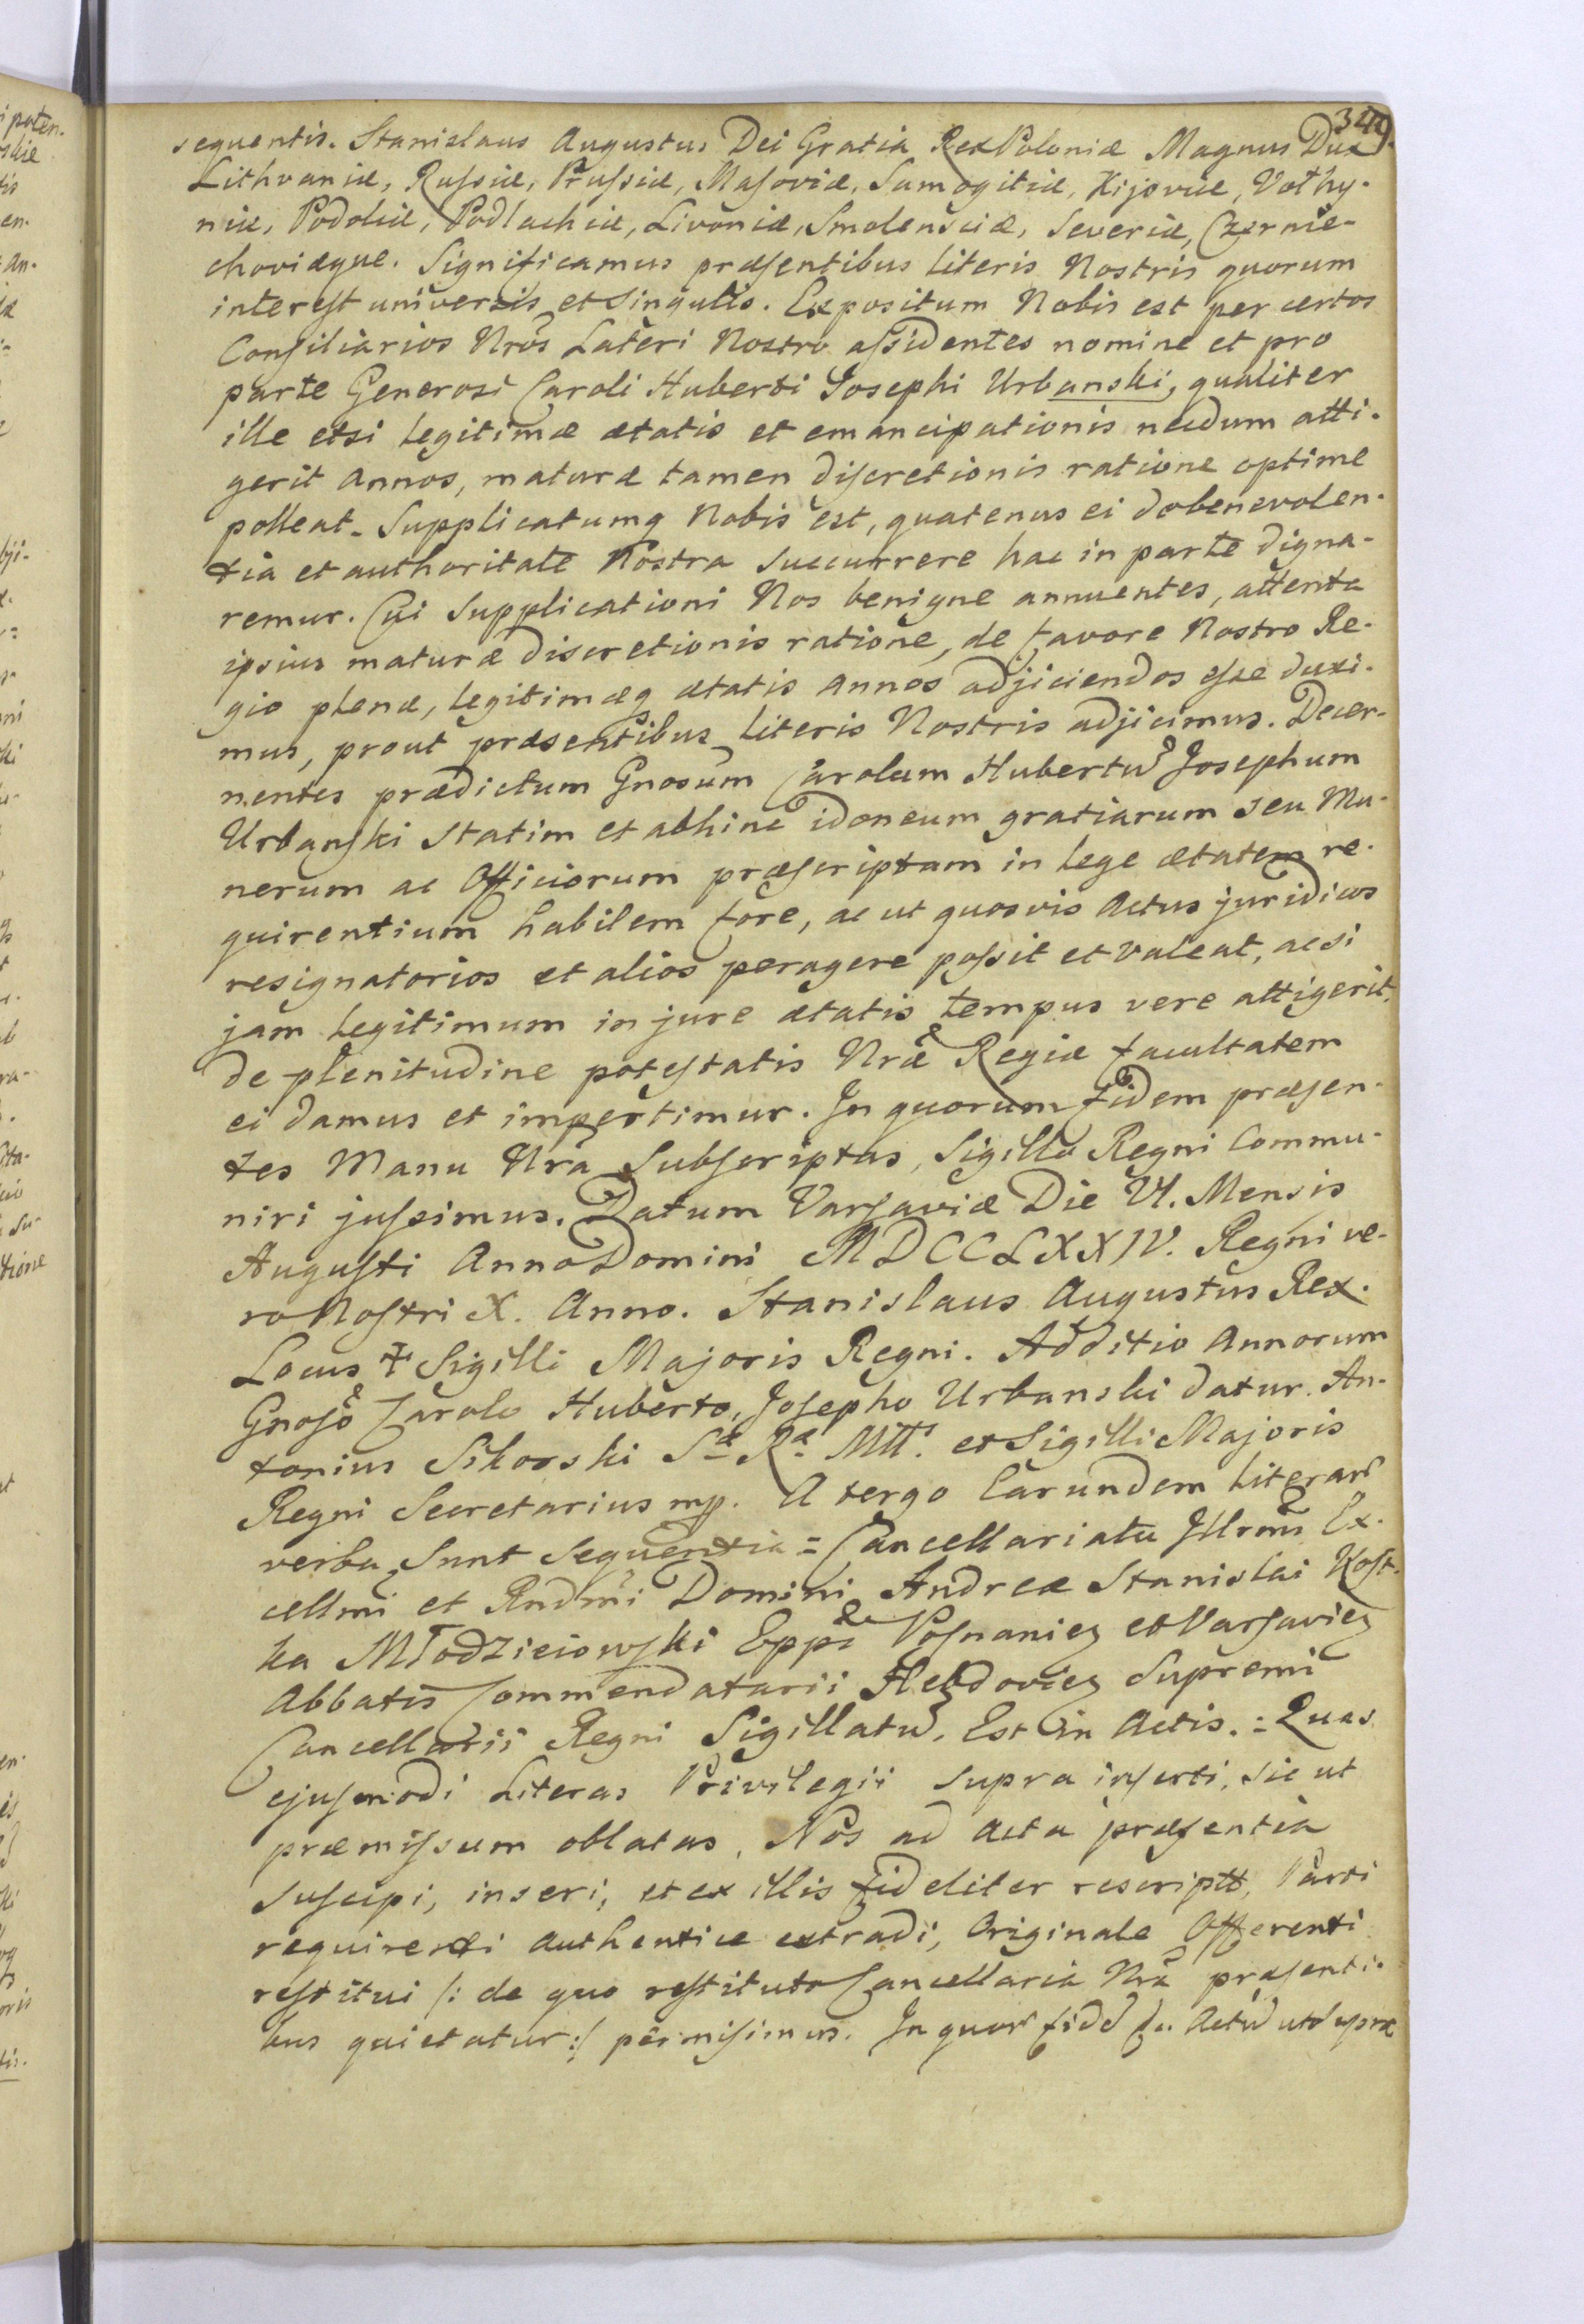 344
sequentis. Stanislaus Augustus Dei Gratia Rex Poloniæ Magnus Dux
Lithvaniæ, Russiæ, Prussiæ, Masoviæ, Samogitiæ, Kijoviæ, Volhy-
niæ, Podoliæ, Podlachiæ, Livoniæ, Smolensciæ, Severiæ, Czernie-
choviæque. Significamus præsentibus literis Nostris quorum
interest universis et singulis. Expositum Nobis est per certos
Consiliarios Nros Lateri Nostro assidentes nomine et pro
parte Generosi Caroli Huberti Josephi Urbanski, qualiter
ille etsi legitimæ ætatis et emancipationis necdum atti-
gerit annos, maturæ tamen discretionis ratione optime
polleat. Supplicatumq Nobis est, quatenus ei de benevolen-
tia et authoritate Nostra succurrere hac in parte digna-
remur. Cui supplicationi Nos benigne annuentes, attenta
ipsius maturæ discretionis ratione, de favore Nostro Re-
gio plenæ, legitimæq ætatis annos adjiciendos esse duxi-
mus, prout præsentibus literis Nostris adjicimus. Decer-
nentes prædictum Gnosum Carolum Hubertu Josephum
Urbanski statim et abhinc idoneum gratiarum seu Mu-
nerum ac Officiorum præscriptam in lege ætatem re-
quirentium habilem fore, ac ut quosvis Actus juridicos
resignatorios et alios peragere possit et valeat, acsi
jam legitimum in jure ætatis tempus vere attigerit,
de plenitudine potestatis Nræ Regiæ facultatem
ei damus et impertimur. In quorum fidem præsen-
tes Manu Nra Subscriptas, Sigillo Regni Commu-
niri jussimus. Datum Varsaviæ Die VI. Mensis
Augusti Anno Domini MDCCLXXIV. Regni ve-
ro Nostri X. Anno. Stanislaus Augustus Rex.
Locus † Sigilli Majoris Regni. Additio Annorum
Gnoso Carolo Huberto, Josepho Urbanski datur. An-
tonius Sikorski Sæ Ræ Mtt. et Sigilli Majoris
Regni Secretarius mp. A tergo Earundem literar
verba sunt sequentia = Cancellariatu Illrmi Ex-
cellmi et Rndmi Domini Andreæ Stanislai Kost-
ka Młodzieiowski Eppi Posnanien et Varsavien
Abbatis Commendatarii Hebdovien Supremi
Cancellarii Regni Sigillatu. Est in Actis. = Quas
ejusmodi Literas Privilegii supra inserti, sic ut
præmissum oblatas, Nos ad Acta præsentia
suscipi, inseri, et ex illis fideliter rescriptt, Parti
requirenti authentice extradi, Originale Offerenti
restitui /: de quo restituto Cancellaria Nra præsenti-
bus quietatur :/ permisimus. In quor fidd Actu ut supra